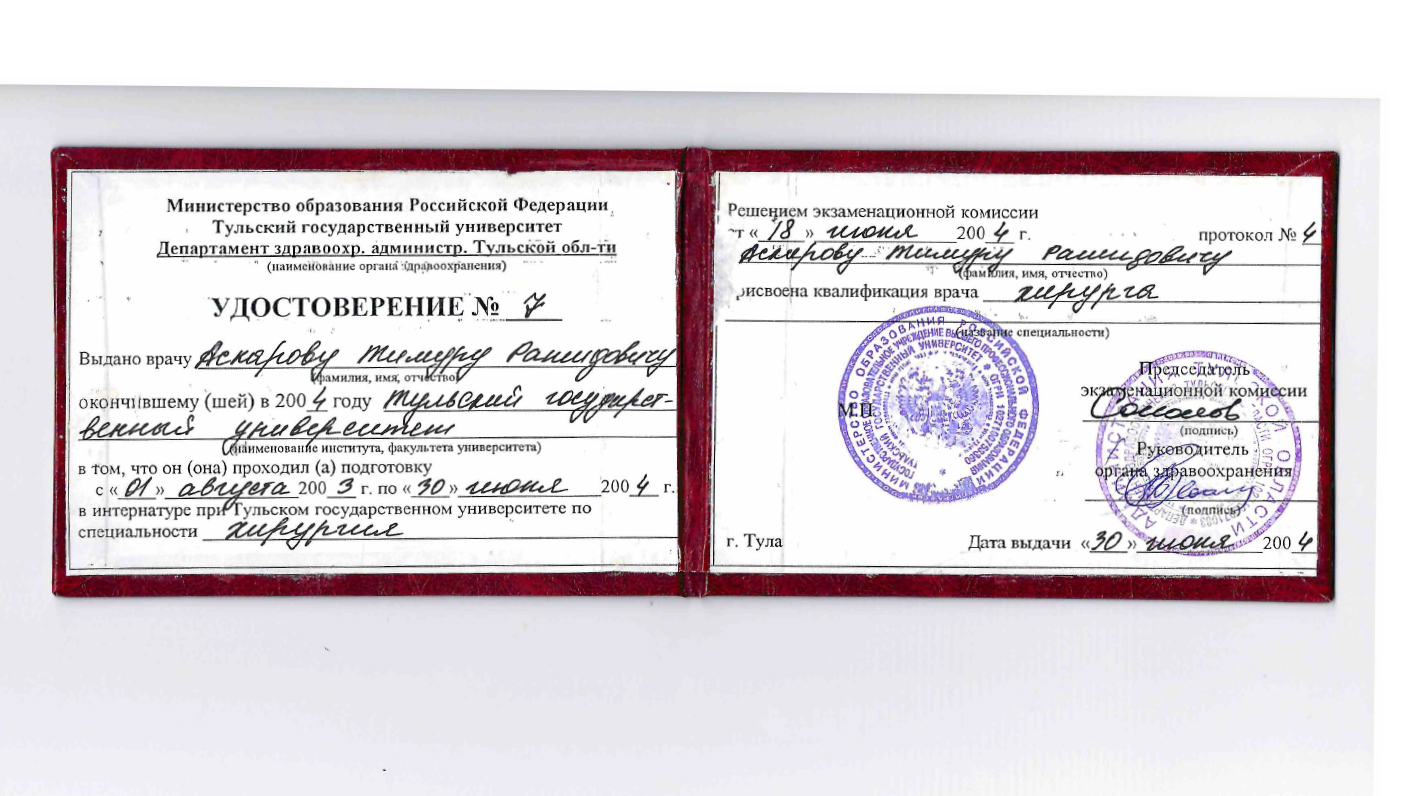 Министерство образования Российской Федерации
Тульский государственный университет
Департамент здравоохр. администр. Тульской обл-ти
(наименование органа здравоохранения)
УДОСТОВЕРЕНИЕ № 7
Выдано врачу Аскарову Тимуру Рашидовичу
(фамилия, имя, отчество)
окончившему (шей) в 2004 году Тульский государст-
венный университет
(наименование института, факультета университета)
в том, что он (она) проходил (а) подготовку
с «01» августа 2003 г. по «30» июня 2004 г.
в интернатуре при Тульском государственном университете по
специальности хирургия
Решением экзаменационной комиссии
от «18» июня 2004 г. протокол № 4
Аскарову Тимуру Рашидовичу
(фамилия, имя, отчество)
рисвоена квалификация врача хирурга
(название специальности)
МИНИСТЕРСТВО ОБРАЗОВАНИЯ РОССИЙСКОЙ ФЕДЕРАЦИИ
ТУЛЬСКИЙ ГОСУДАРСТВЕННЫЙ УНИВЕРСИТЕТ
М.П.
Председатель
экзаменационной комиссии
(подпись)
Руководитель
органа здравоохранения
(подпись)
г. Тула Дата выдачи «30» июня 2004